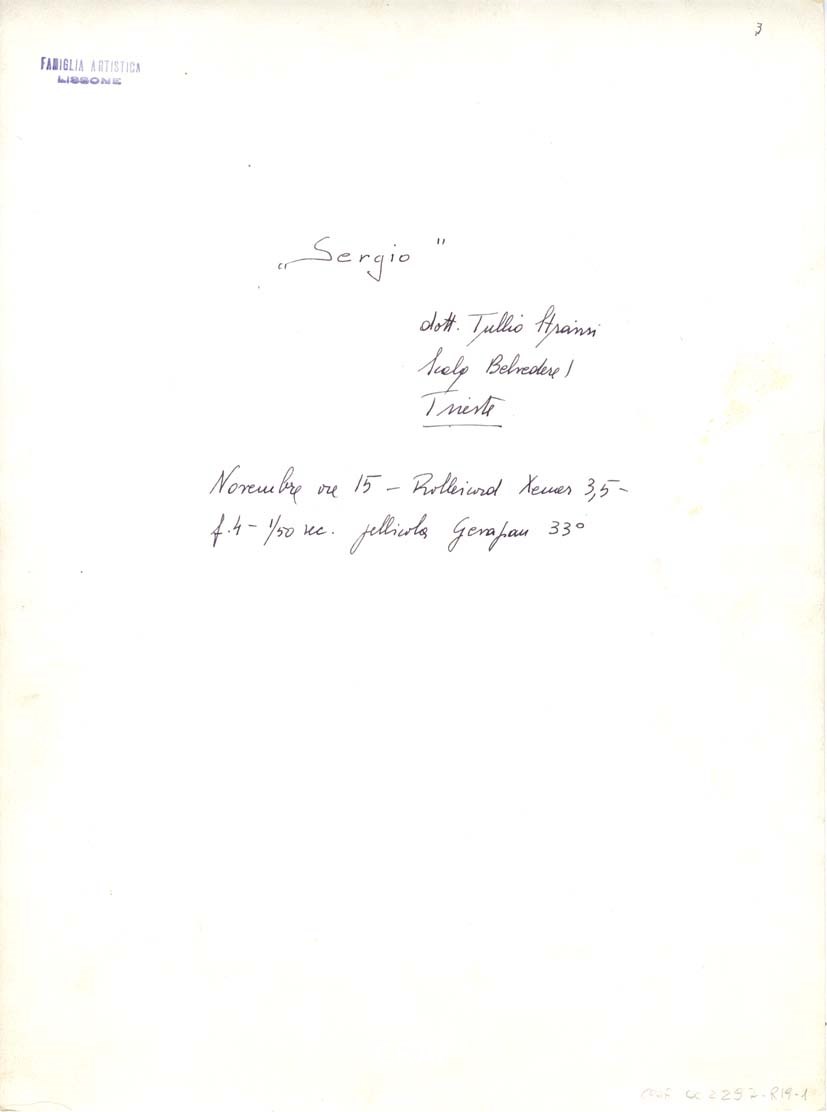 3
FAMIGLIA ARTISTICA
LISSONE
„Sergio"
dott. Tullio Stravisi
Scala Belvedere 1
Trieste
Novembre ore 15 - Rolleicord Xenar 3,5 -
f.4 - 1/50 sec. pellicola Gevapan 33°
2297-R19-1